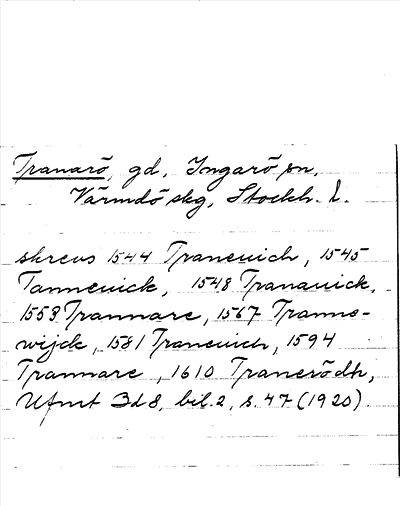 Tranarö, gd, Ingarö sn,
Värmdö skg, Stockh. l.
skrevs 1544 Traneuich, 1545
Tanneuick, 1548 Tranauick,
1553 Trannare, 1567 Tranne-
wijck, 1581 Traneuich, 1594
Trannare, 1610 Tranerödh,
Ufmt Bd 8, bil. 2, s. 47 (1920).